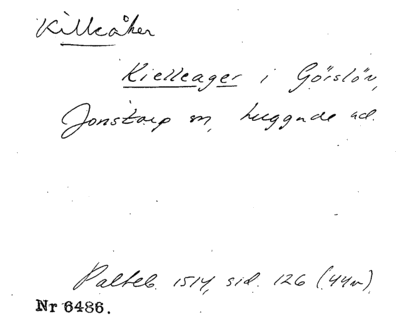 Killeåker
Kielleager i Görslöv,
Jonstorp sn, Luggude hd.
Palteb. 1514, sid. 126 (44v)
Nr 6486.